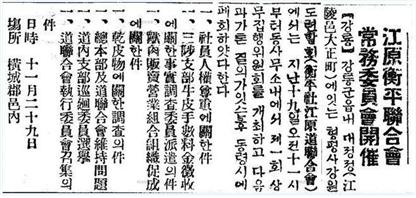 江原衡平聯合會
常務委員會開催
【江陵】 강릉군읍내 대정정(江
陵邑大正町)에잇는 형평사강원
도련합회(衡平社江原道聯合會)
에서는 지난十九일오전十一시
부터동사무소내에서 제一회상
무집행위원회를 개최하고 다음
과가튼 결의가잇슨후 동령시에
폐회하얏다한다
一、社員人權尊重에關한件
一、三陟支部牛皮手數料金徵收
에關한事實調査委員派遣의件
一、獸肉販賣營業組合組織促成
에關한件
一、乾皮物에關한調査의件
一、總本部及道聯合會維持問題
一、道內支部巡廻委員選擧
一、道聯合會執行委員會召集의
件
日時 十一月二十九日
場所 橫城郡邑內